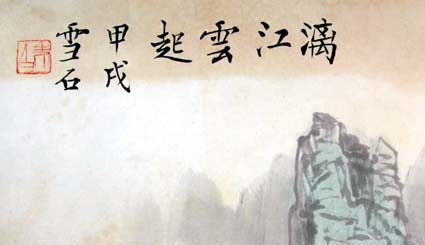 漓江雲起
甲戌
雪石